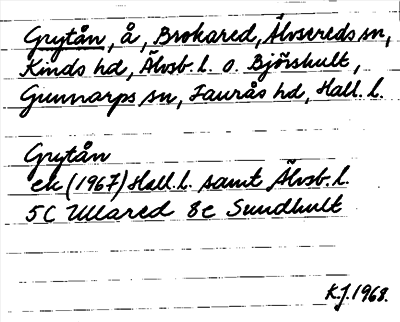 Grytån, å, Brokared, Älvsereds sn,
Kinds hd, Älvsb. l. o. Björshult,
Gunnarps sn, Faurås hd, Hall. l.
Grytån
ek (1967) Hall. l. samt Älvsb. l.
5C Ullared 8e Sundhult
K.J. 1968.